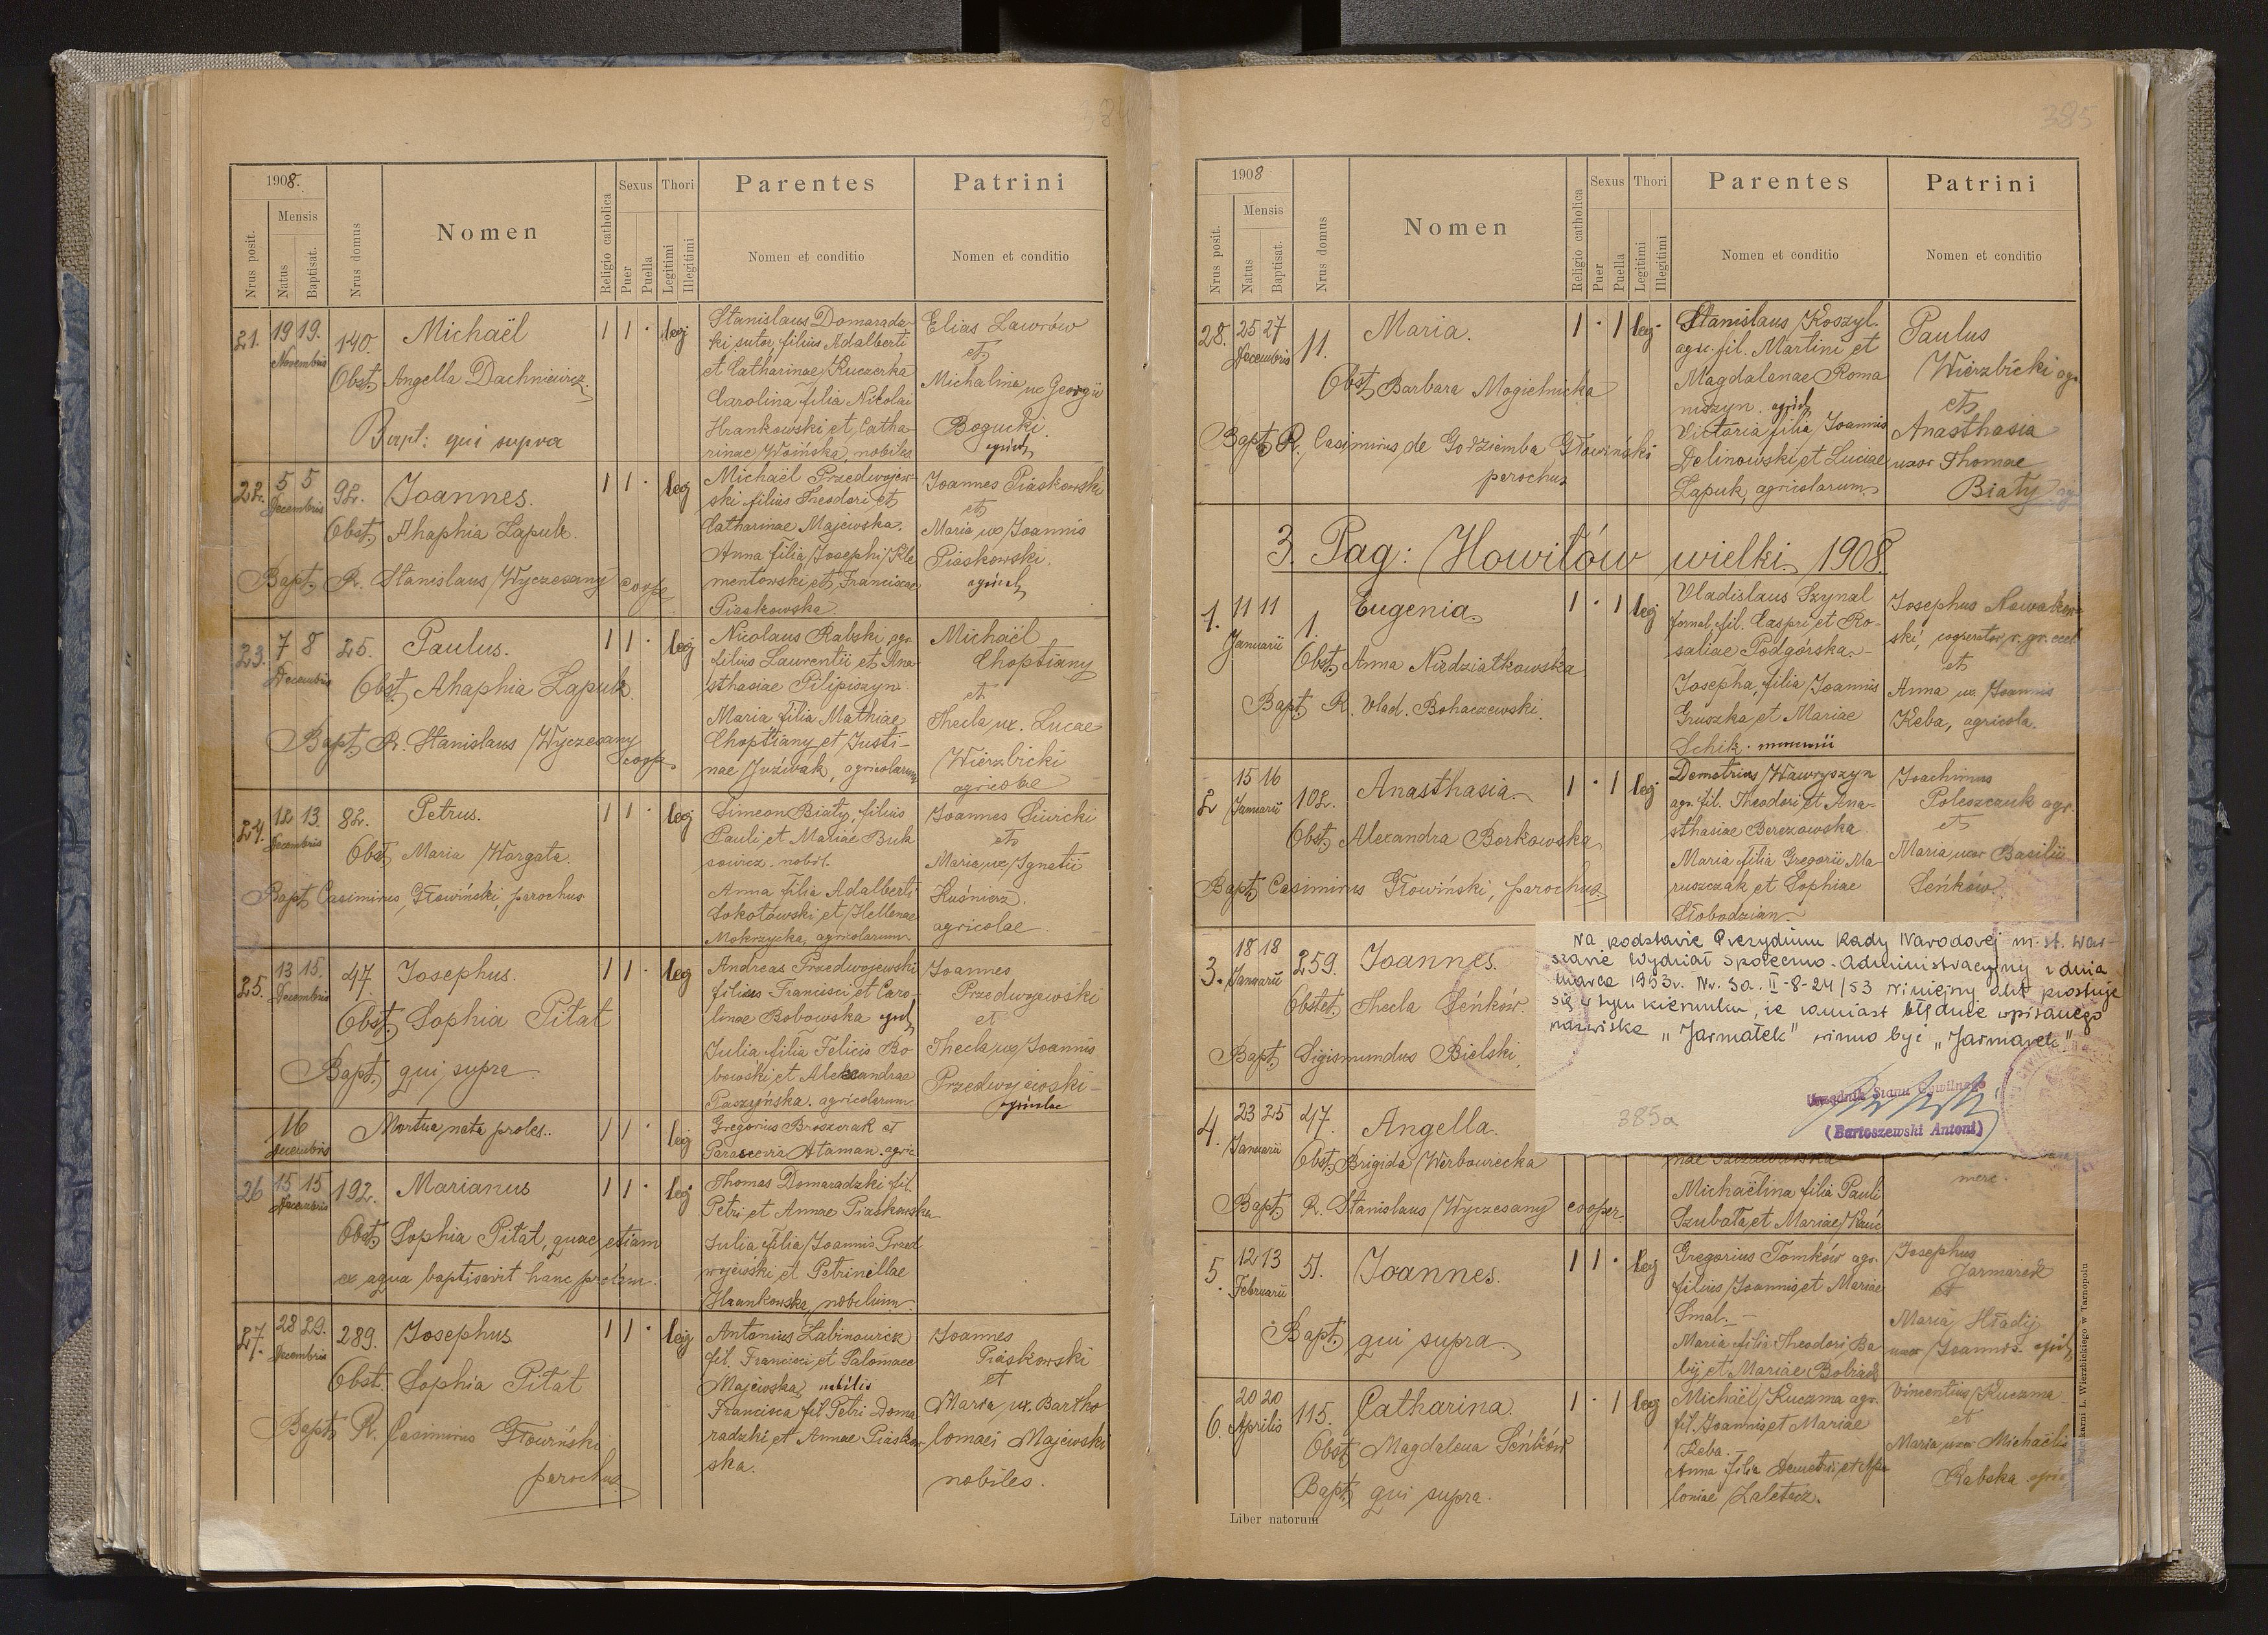 385
1908.
Nrus posit.
Mensis
Natus
Baptisat.
Nrus domus
Nomen
Religio catholica
Sexus
Puer
Puella
Thori
Legitimi
Illegitimi
Parentes
Nomen et conditio
Patrini
Nomen et conditio
21. 19 19. Novembris 140. Michaël 1 1 · leg
Obst. Angella Dachniewicz
Bapt: qui supra
Stanislaus Domaradz-
ki sutor, filius Adalberti
et Catharinae Kuczerka
Carolina filia Nicolai
Hrankowski et Catha-
rinae Woińska, nobiles
Elias Lawrów
et
Michalina ux Georgii
Bogucki
agricol.
22. 5 5 Decembris 92. Joannes. 1 1 · leg
Obst. Ahaphia Lapuk.
Bapt. R. Stanislaus Wyczesany coope.
Michaël Przedwojew-
ski filius Theodori et
Catharinae Majewska.
Anna filia Josephi Kle
mentowski et Francisca
Piaskowska
Joannes Piaskowski
et
Maria ux Joannis
Piaskowski.
agricol.
23. 7 8 Decembris 25. Paulus. 1 1 · leg
Obst. Ahaphia Lapuk
Bapt. R. Stanislaus Wyczesany
coop.
Nicolaus Rabski agr.
filius Laurentii et Ana
sthasiae Pilipiszyn
Maria filia Mathiae
Choptiany et Justi-
nae Juźwak, agricolarum
Michaël
Choptiany
et
Thecla ux. Lucae
Wierzbicki
agricolae
24. 12 13. Decembris 82. Petrus. 1 1 · leg
Obst. Maria Wargata.
Bapt. Casimirus Głowiński, parochus
Simeon Biały, filius
Pauli et Mariae Buk
sowicz. nobil.
Anna filia Adalberti
Sokołowski et Hellenae
Mokrzycka, agricolarum.
Joannes Siwicki
et
Maria ux Ignatii
Kuśnierz.
agricolae
25. 13 15. Decembris 47. Josephus. 1 1 · leg
Obst. Sophia Pitat
Bapt. qui supra
Andreas Przedwojewski
filius Francisci et Caro-
linae Bobowska
Julia filia Felicis Bo
bowski et Alexandrae
Paszyńska. agricolarum.
Joannes
Przedwojewski
et
Thecla ux Joannis
Przedwojewski
agricolae
16 Decembris Mortua nata proles.. 1 1 · leg
Gregorius Broszczak et
Parascevia Ataman. agric
26 15 15 Decembris 192. Marianus 1 1 · leg
Obst. Sophia Pitat, quae etiam
ex aqua baptisavit hanc prolem.
Thomas Domaradzki fil.
Petri et Annae Piaskowska
Julia filia Joannis Przed
wojewski et Petrinellae
Hrankowska, nobilium.
27. 28 29. Decembris 289. Josephus 1 1 · leg
Obst. Sophia Pitat
Bapt. R. Casimirus Głowiński
parochus
Antonius Labinowicz
fil. Francisci et Salomeae
Majewska, nobilis
Francisca fil Petri Doma
radzki et Annae Piaskow
ska.
Joannes
Piaskowski
et
Maria ux. Bartho
lomaei Majewski
nobiles.
1908
Nrus posit.
Mensis
Natus
Baptisat.
Nrus domus
Nomen
Religio catholica
Sexus
Puer
Puella
Thori
Legitimi
Illegitimi
Parentes
Nomen et conditio
Patrini
Nomen et conditio
28. 25 27 Decembris 11. Maria. 1 · 1 leg
Obst. Barbara Mogielnicka
Bapt. R. Casimirus de Godziemba Głowiński
parochus
Stanislaus Koszyl.
agr. fil. Martini et
Magdalenae Roma
niszyn. agricol.
Victoria filia Joannis
Delinowski et Luciae
Lapuk, agricolarum
Paulus
Wierzbicki agr.
et
Anasthasia
uxor Thomae
Biały agr.
3. Pag: Howilów wielki 1908.
1. 11 11 Januarii 1. Eugenia 1 · 1 leg
Obst. Anna Nidziatkowska
Bapt. R. Vlad. Bohaczewski.
Vladislaus Szynal
fornal, fil. Caspri et Ro-
saliae Podgórska.
Josepha, filia Joannis
Gruszka et Mariae
Schik.
Josephus Nowakow
ski, cooperator r. gr. cat
et
Anna ux. Joannis
Keba, agricola.
2 15 16 Januarii 102. Anasthasia. 1 · 1 leg
Obst. Alexandra Borkowska
Bapt. Casimirus Głowiński, parochus.
Demetrius Wawryszyn
agr. fil. Theodori et Ana-
sthasiae Berezowska
Maria filia Gregorii Ma-
ruszczak et Sophiae
Słobodzian
Joachimus
Poleszczuk agr.
et
Maria uxor Basilii
Seńków
3. 18 18 Januarii 259. Joannes.
Obstet. Thecla Seńków.
Bapt. Sigismundus Bielski,
Na podstawie Prezydium Rady Narodowej m. st. War-
szawie Wydział Społeczno-Administracyjny z dnia
marca 1953 r. Nr. Sa. II-8-24/53 niniejszy akt prostuje
się w tym kierunku, że zamiast błędnie wpisanego
nazwiska „Jarmałek" winno być „Jarmarek"
Urzędnik Stanu Cywilnego
(Bartoszewski Antoni)
385a
4. 23 25 Januarii 47. Angella.
Obst. Brigida Werbowecka
Bapt. R. Stanislaus Wyczesany cooper.
Michaëlina filia Pauli
Szubata et Mariae
merc.
5. 12 13 Februarii 51. Joannes. 1 1 · leg
Bapt. qui supra.
Gregorius Tomków agr.
filius Joannis et Mariae
Smal.
Maria filia Theodori Ba
bij et Mariae
Josephus
Jarmarek
et
Maria Hładij
uxor Joannis.
6. 20 20 Aprilis 115. Catharina. 1 · 1 leg
Obst. Magdalena Seńków
Bapt. qui supra.
Michaël Kuczma agr.
fil. Joannis et Mariae
Keba.
Anna filia Demetrii et Apo
loniae Zaletacz.
Vincentius Kuczma
et
Maria uxor Michaëlis
Rabska
Liber natorum
L. Wierzbickiego w Tarnopolu